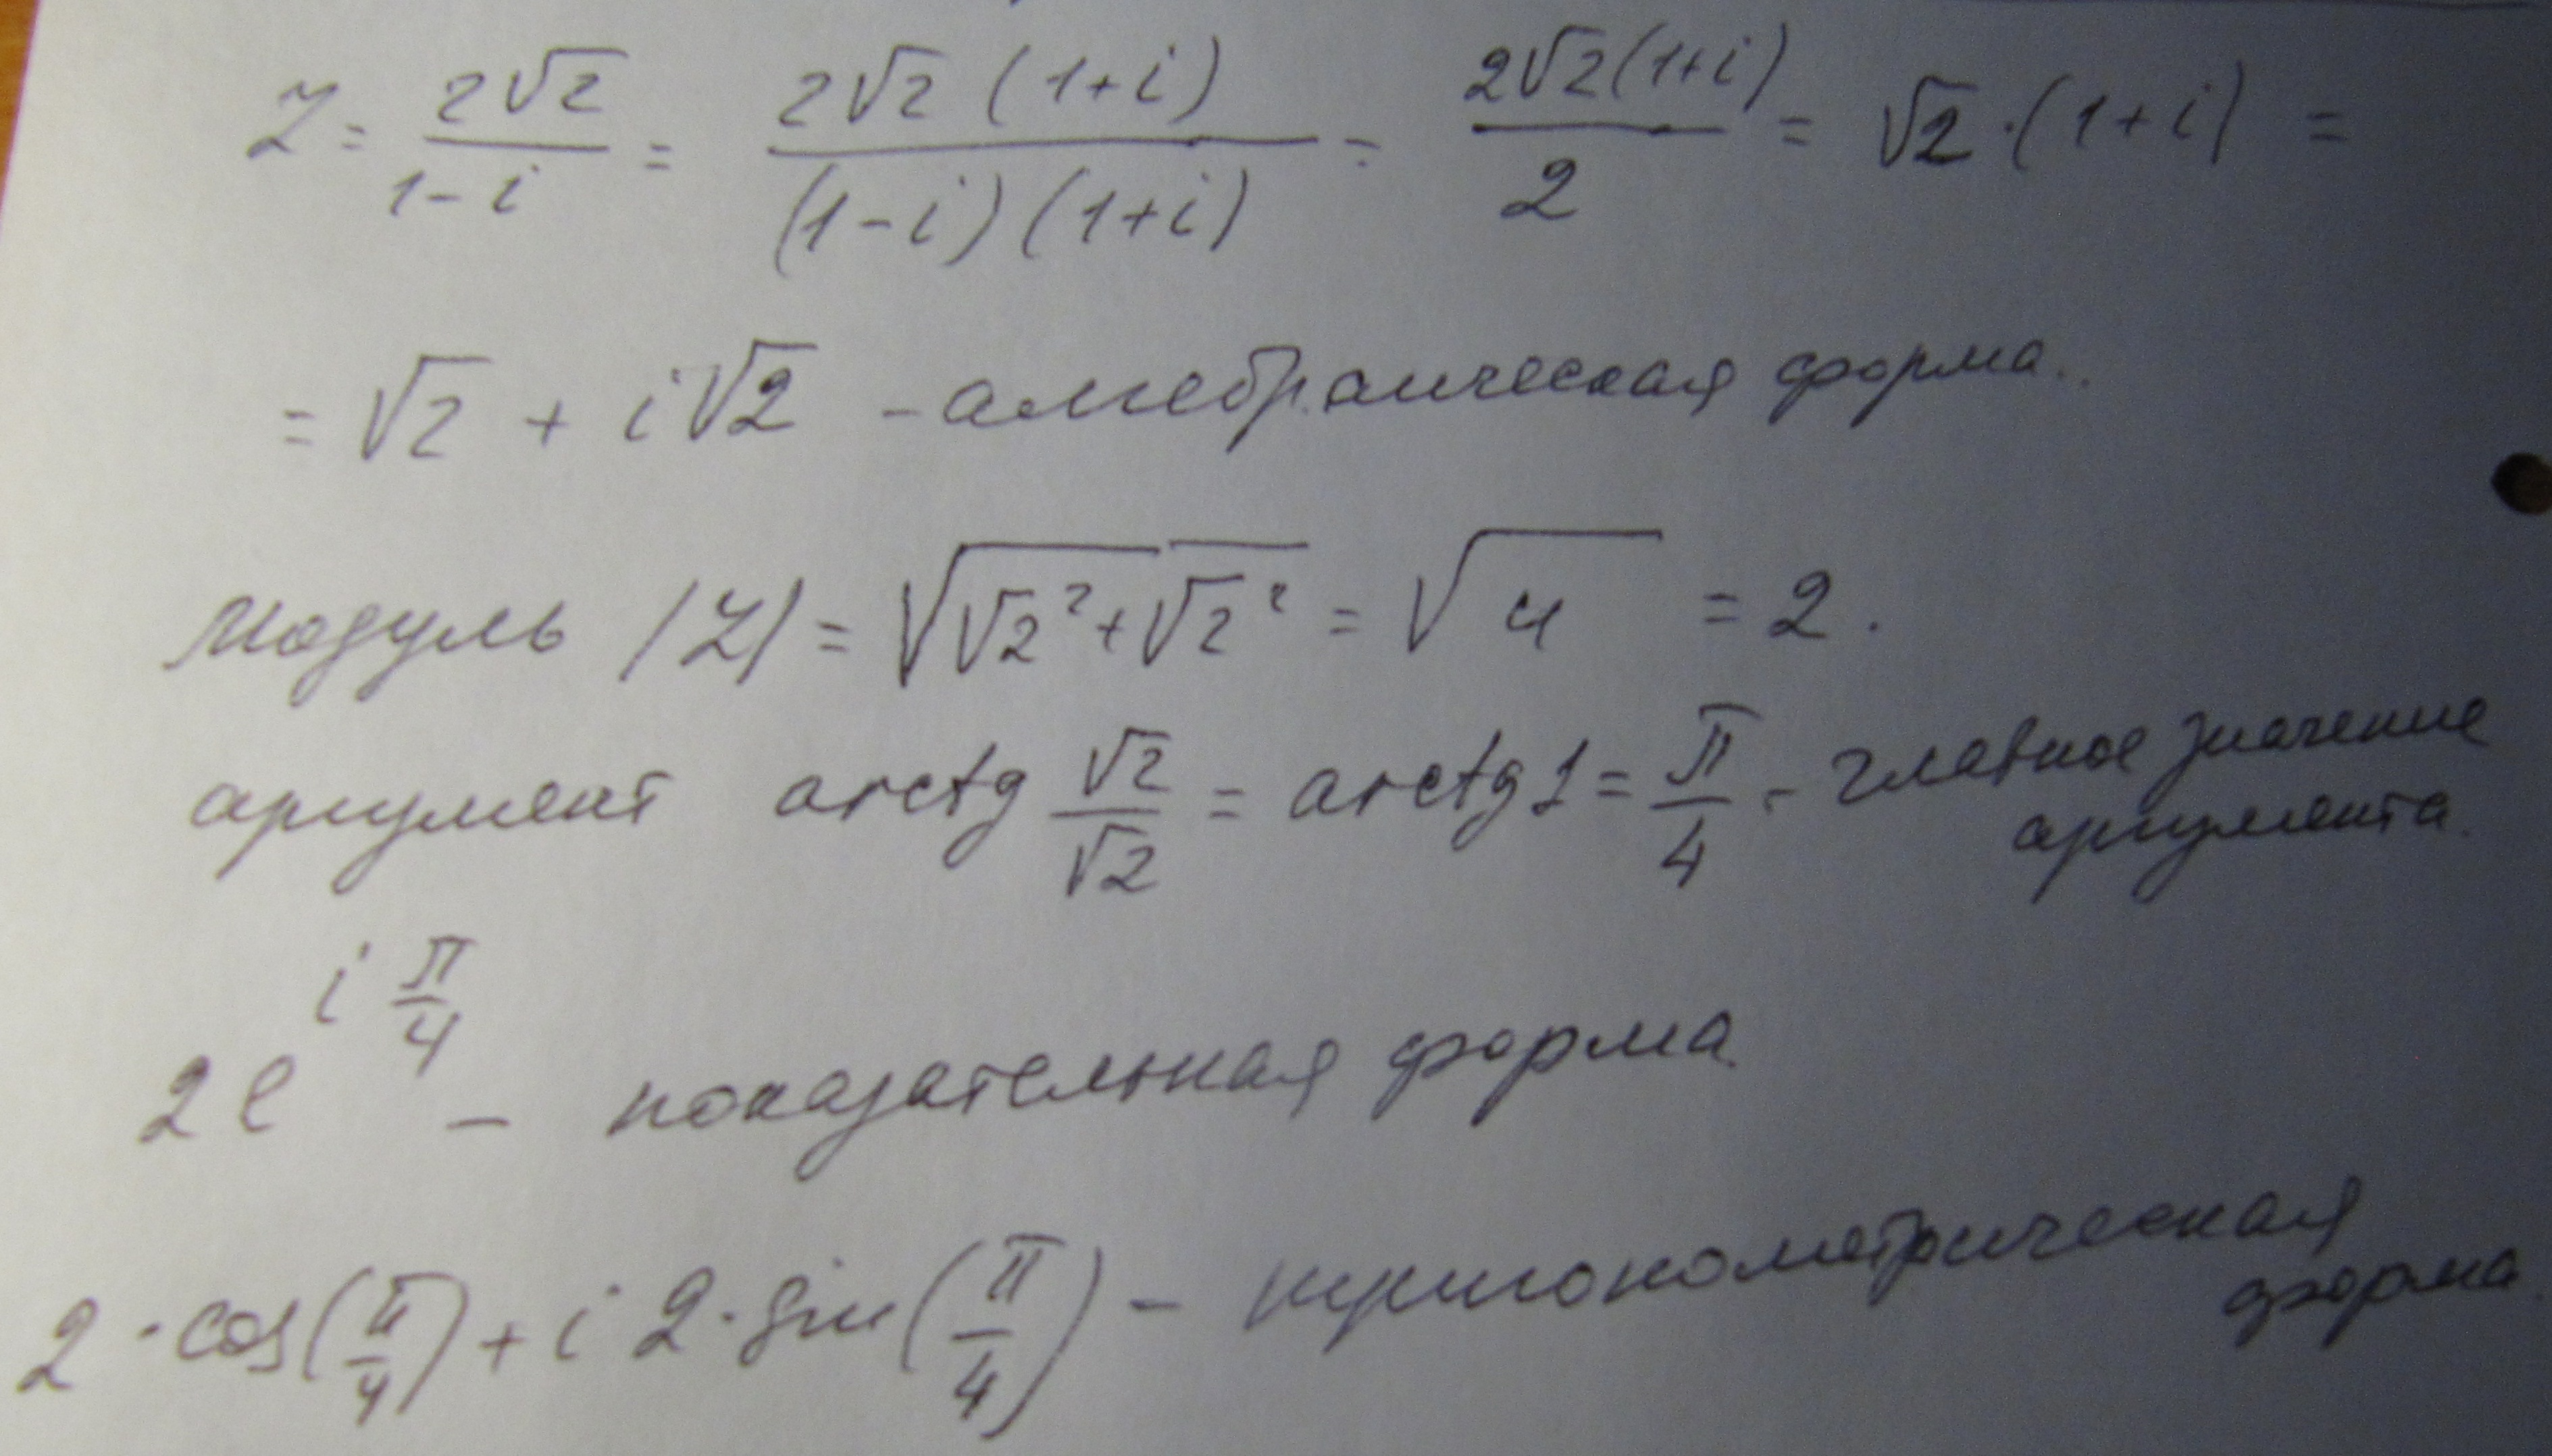 Z = 2√2 / 1-i = 2√2 (1+i) / (1-i)(1+i) = 2√2(1+i) / 2 = √2·(1+i) =
= √2 + i√2 - алгебраическая форма.
модуль |Z| = √(√2² + √2²) = √4 = 2.
аргумент arctg √2/√2 = arctg 1 = π/4 - главное значение
аргумента.
2e^(i π/4) - показательная форма
2·cos(π/4) + i 2·sin(π/4) - тригонометрическая
форма.